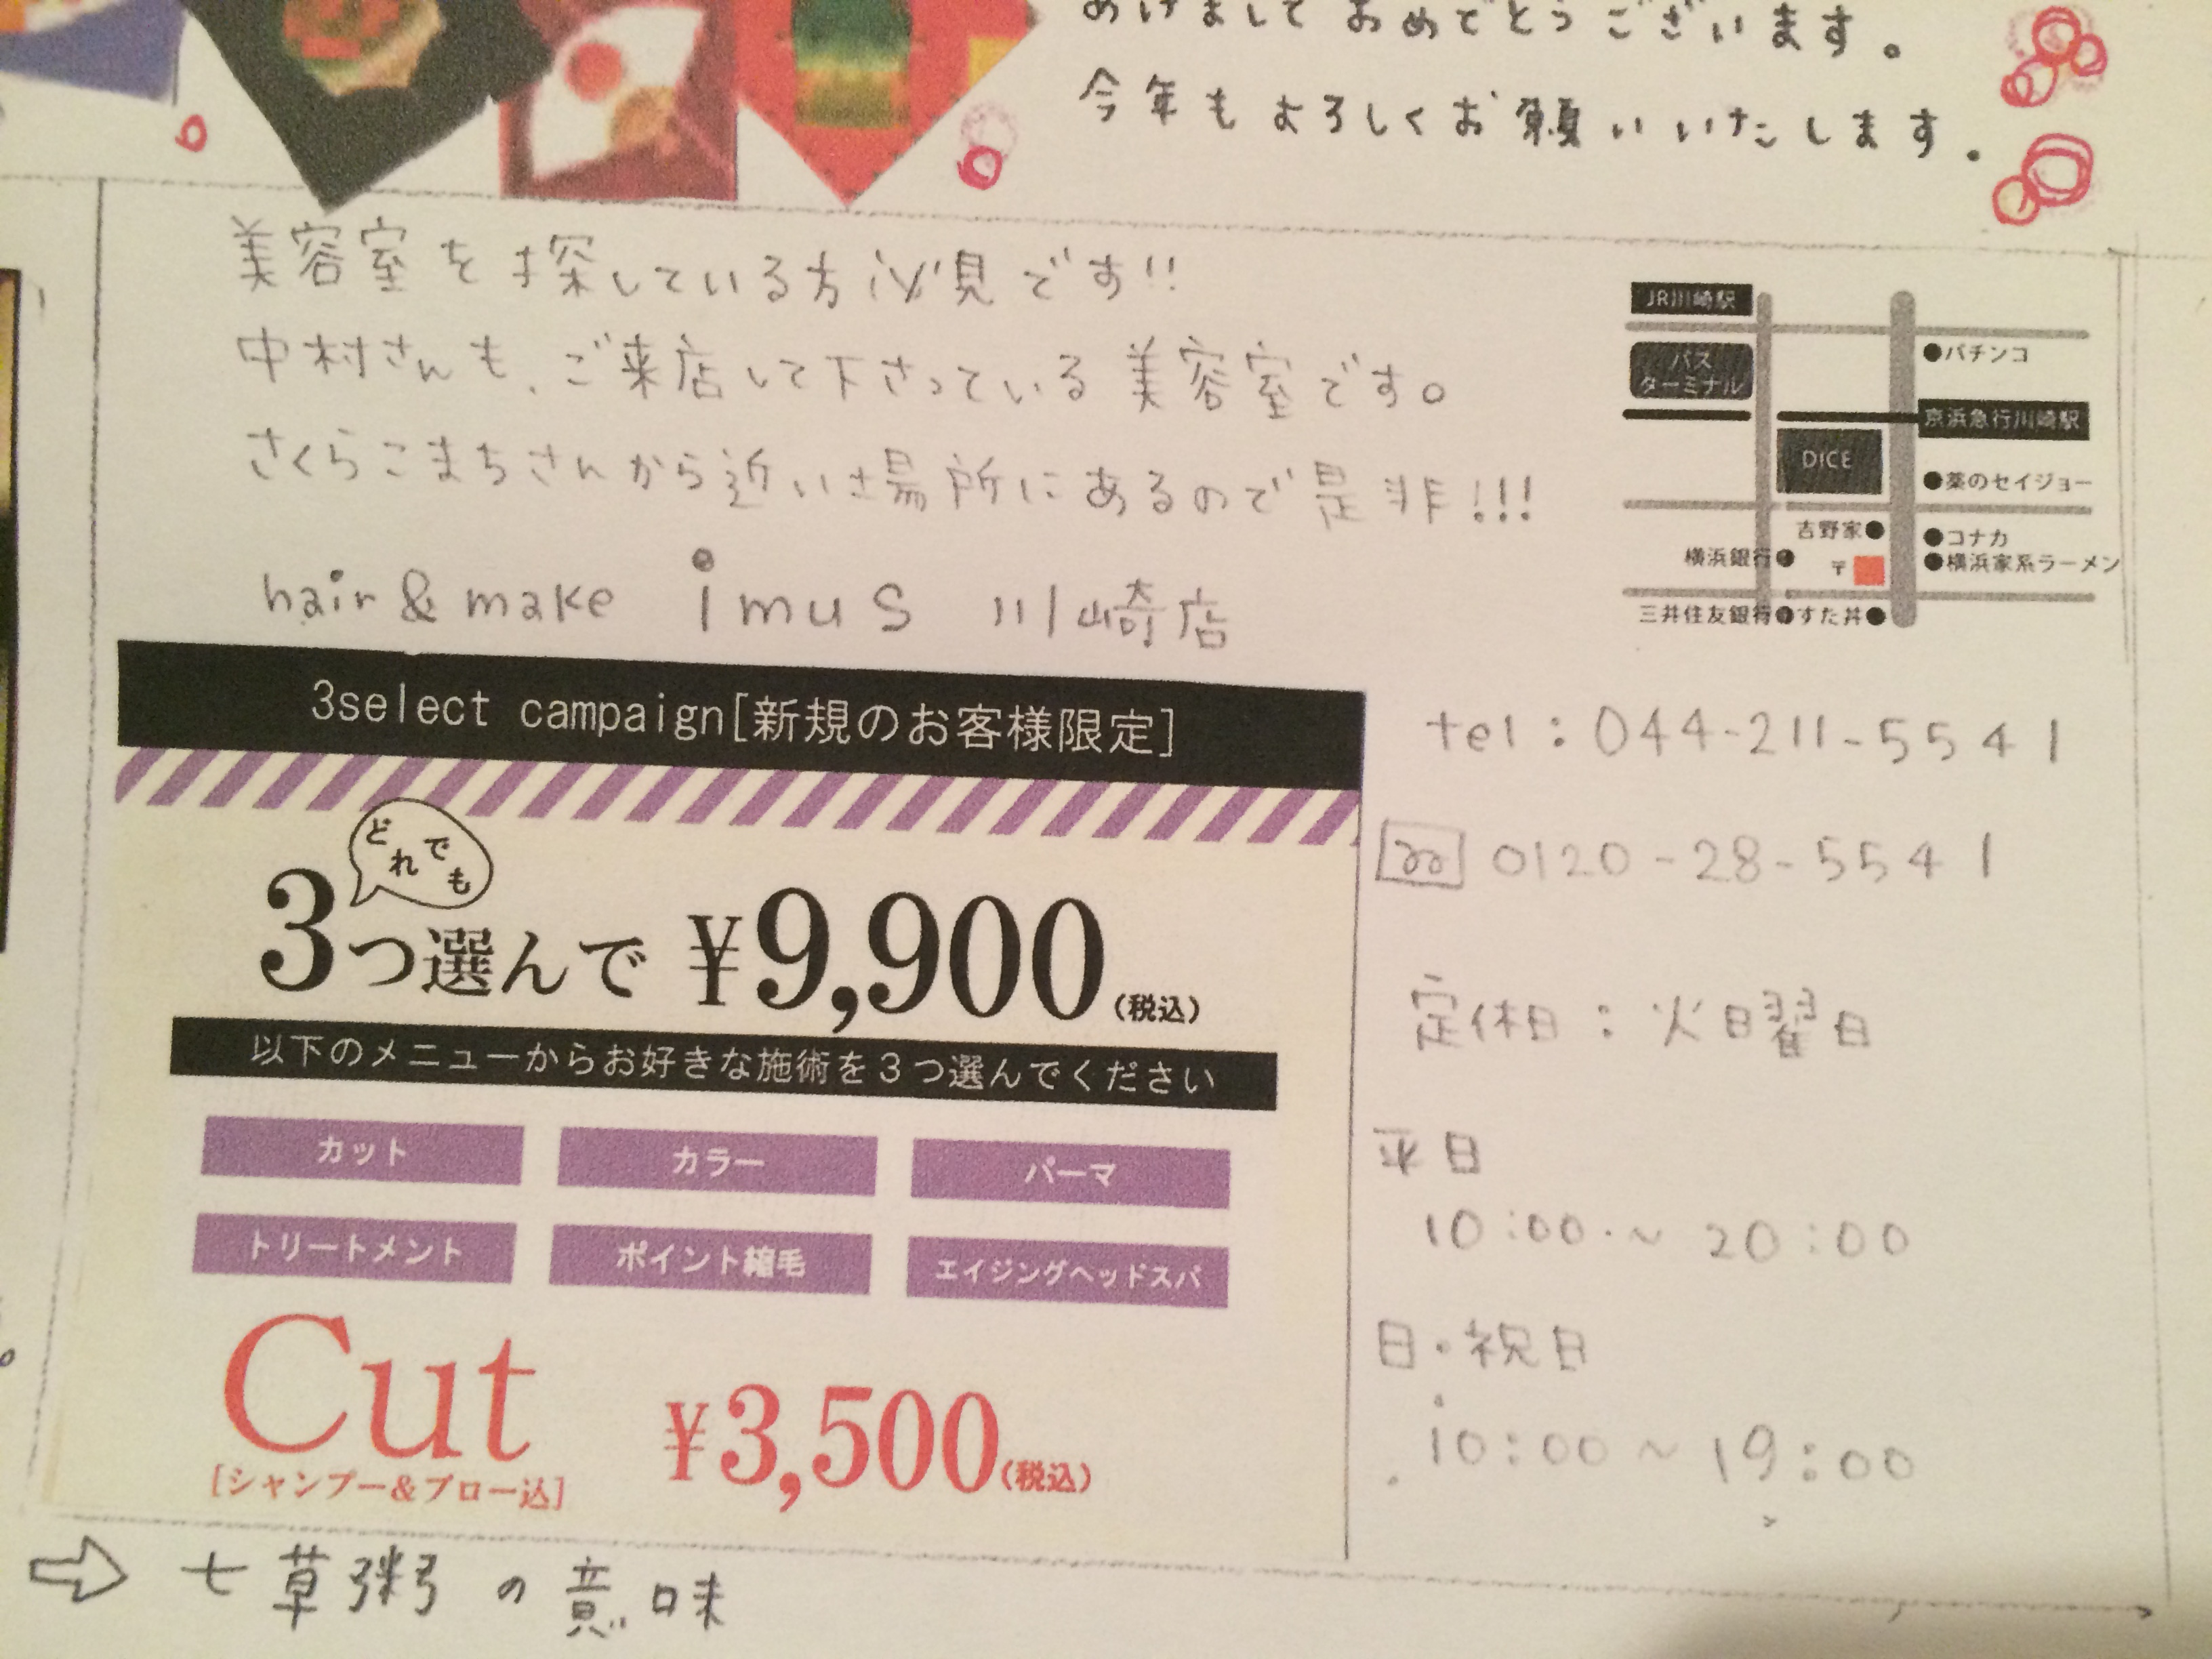 あけましておめでとうございます。
今年もよろしくお願いいたします。
美容室を探している方必見です!!
中村さんも、ご来店して下さっている美容室です。
さくらこまちさんから近い場所にあるので是非!!!
hair & make imus 川崎店
JR川崎駅
バス
ターミナル
●パチンコ
京浜急行川崎駅
DICE
●薬のセイジョー
吉野家●
●コナカ
横浜銀行●
〒
●横浜家系ラーメン
三井住友銀行●
すた丼●
3select campaign[新規のお客様限定]
どれでも
3つ選んで ¥9,900(税込)
以下のメニューからお好きな施術を3つ選んでください
カット
カラー
パーマ
トリートメント
ポイント縮毛
エイジングヘッドスパ
Cut ¥3,500(税込)
[シャンプー&ブロー込]
tel:044-211-5541
0120-28-5541
定休日:火曜日
平日
10:00~20:00
日・祝日
10:00~19:00
⇨ 七草粥の意味